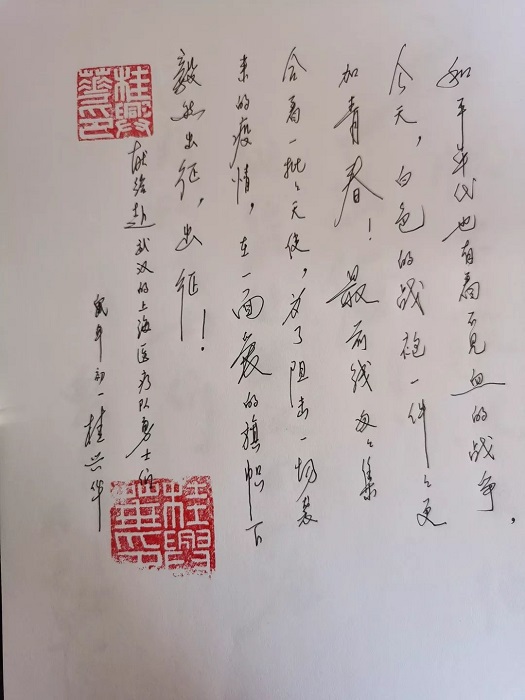 和平年代也有着不见血的战争，
今天，白色的战袍一件々更
加青春！最前线每々集
合着一批々天使，为了阻击一切袭
来的疫情，在一面的旗帜下
毅然出征，出征！
献给赴武汉的上海医疗队勇士们
鼠年初一桂兴华
桂興華印
桂興華印